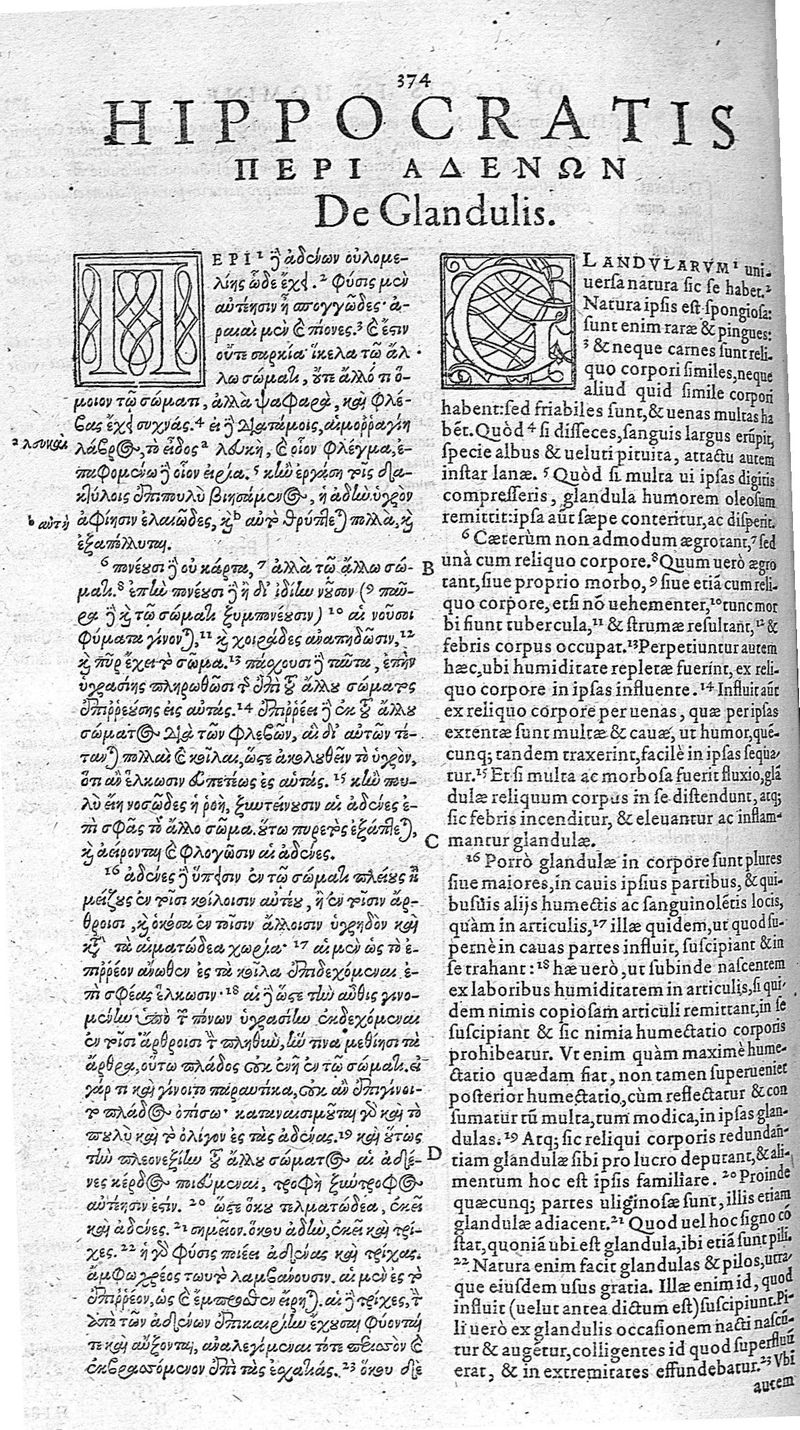 374
HIPPOCRATIS
ΠΕΡΙ ΑΔΕΝΩΝ
De Glandulis.
ΠΕΡΙ¹ ἢ ἀδένων οὐλομε-
λίης ὧδε ἔχει.² φύσις μὲν
αὐτέησιν ἡ σπογγῶδες· ἀ-
ραιαὶ μὲν καὶ πίονες.³ καὶ ἔστιν
οὔτε σαρκία ἴκελα τῷ ἄλ-
λῳ σώματι, οὔτε ἄλλό τι ὅ-
μοιον τῷ σώματι, ἀλλὰ ψαφαρὰ, καὶ φλέ-
βας ἔχει συχνάς.⁴ εἰ δὲ διατάμοις, αἱμορραγίη
λάβρος, τὸ εἶδος ᵃ λευκὴ, καὶ οἷον φλέγμα, ἐ-
ᵃ λευκαὶ
παφομένῳ δὲ οἷον εἴρια.⁵ κἢν ἐργάσῃ τοῖς δα-
κτύλοις ἐπιπουλὺ βιησάμενος, ἡ ἀδὴν ὑγρὸν
ᵇ αὐτὴ
ἀφίησιν ἐλαιῶδες, καὶ ᵇ αὐτὸ θρύπτεται πολλὰ, καὶ
ἐξαπόλλυται.
⁶ πονέουσι δὲ οὐ κάρτα, ⁷ ἀλλὰ τῷ ἄλλῳ σώ-
B
ματι.⁸ ἐπὴν πονέουσι δὲ ἢ δι' ἰδίην νοῦσον (⁹ παῦ-
ρα δὲ καὶ τῷ σώματι ξυμπονέουσιν) ¹⁰ αἱ νοῦσοι
φύματα γίνονται, ¹¹ καὶ χοιράδες ἀναπηδῶσιν, ¹²
καὶ πῦρ ἔχει τὸ σῶμα.¹³ πάσχουσι δὲ ταῦτα, ἐπὴν
ὑγρασίης πληρωθῶσι τῆς ἀπὸ τοῦ ἄλλου σώματος
ἐπιρρεούσης εἰς αὐτάς.¹⁴ ἐπιρρέει δὲ ἐκ τοῦ ἄλλου
σώματος διὰ τῶν φλεβῶν, αἳ δι' αὐτῶν τέ-
τανται πολλαὶ καὶ κοῖλαι, ὥστε ἀκολουθεῖν τὸ ὑγρὸν,
ὅτι ἂν ἕλκωσιν εὐπετέως ἐς αὐτάς.¹⁵ κἢν που-
λὺ ἔῃ νοσῶδες ἡ ῥοὴ, ξυντείνουσιν αἱ ἀδένες ἐ-
πὶ σφᾶς τὸ ἄλλο σῶμα. οὕτω πυρετὸς ἐξάπτεται,
C
καὶ ἀείρονται καὶ φλογῶσιν αἱ ἀδένες.
¹⁶ ἀδένες δὲ ὕπεισιν ἐν τῷ σώματι πλείους ἢ
μείζους ἐν τοῖσι κοίλοισιν αὐτέου, ἢ ἐν τοῖσιν ἄρ-
θροισι, καὶ ὁκόσα ἐν τοῖσιν ἄλλοισιν ὑγρηδὸν καὶ
κατὰ τὰ αἱματώδεα χωρία· ¹⁷ αἱ μὲν ὡς τὸ ἐ-
πιρρέον ἄνωθεν ἐς τὰ κοῖλα ἐπιδεχόμεναι ἐ-
πὶ σφέας ἕλκωσιν· ¹⁸ αἱ δὲ ὥστε τὴν αὖθις γινο-
μένην ὑπὸ τῶν πόνων ὑγρασίην ἐκδεχόμεναι
ἐν τοῖσι ἄρθροισι τὴν πληθὺν, ἥν τινα μεθίησι τὰ
ἄρθρα, οὕτω πλάδος οὐκ ἐνῆ ἐν τῷ σώματι. εἰ
γάρ τι καὶ γίνοιτο παραυτίκα, οὐκ ἂν ἐπιγίνοι-
το πλάδος ὀπίσω· καταναισιμοῦται γὰρ καὶ τὸ
πουλὺ καὶ τὸ ὀλίγον ἐς τὰς ἀδένας.¹⁹ καὶ οὕτως
τὴν πλεονεξίην τοῦ ἄλλου σώματος αἱ ἀδέ-
D
νες κέρδος ποιεύμεναι, τροφὴ ξύντροφος
αὐτέησιν ἐστιν. ²⁰ ὥστε ὅκου τελματώδεα, ἐκεῖ
καὶ ἀδένες. ²¹ σημεῖον. ὅκου ἀδὴν, ἐκεῖ καὶ τρί-
χες. ²² ἡ γὰρ φύσις ποιέει ἀδένας καὶ τρίχας.
ἄμφω χρέος τωυτὸ λαμβάνουσιν. αἱ μὲν ἐς τὸ
ἐπιρρέον, ὡς καὶ ἔμπροσθεν εἴρηται. αἱ δὲ τρίχες, τὴν
ἀπὸ τῶν ἀδένων ἐπικαιρίην ἔχουσαι φύονταί
τε καὶ αὔξονται, ἀναλεγόμεναι τότε περισσὸν καὶ
ἐκβρασσόμενον ἐπὶ τὰς ἐσχατιάς. ²³ ὅκου δὲ
GLANDVLARVM¹ uni-
uersa natura sic se habet.²
Natura ipsis est spongiosa:
sunt enim raræ & pingues:
³ & neque carnes sunt reli-
quo corpori similes, neque
aliud quid simile corpori
habent: sed friabiles sunt, & uenas multas ha
bẽt. Quòd ⁴ si disseces, sanguis largus erũpit,
specie albus & ueluti pituita, attactu autem
instar lanæ. ⁵ Quòd si multa ui ipsas digitis
compresseris, glandula humorem oleosum
remittit: ipsa aũt sæpe conteritur, ac disperit.
⁶ Cæterùm non admodum ægrotant, ⁷ sed
unà cum reliquo corpore. ⁸ Quum uerò ægro
tant, siue proprio morbo, ⁹ siue etiã cum reli-
quo corpore, etsi nõ uehementer, ¹⁰ tunc mor
bi fiunt tubercula, ¹¹ & strumæ resultant, ¹² &
febris corpus occupat. ¹³ Perpetiuntur autem
hæc, ubi humiditate repletæ fuerint, ex reli-
quo corpore in ipsas influente. ¹⁴ Influit aũt
ex reliquo corpore per uenas, quæ per ipsas
extentæ sunt multæ & cauæ, ut humor, quẽ-
cunq; tandem traxerint, facilè in ipsas sequa-
tur. ¹⁵ Et si multa ac morbosa fuerit fluxio, glã
dulæ reliquum corpus in se distendunt, atq;
sic febris incenditur, & eleuantur ac inflam-
mantur glandulæ.
¹⁶ Porrò glandulæ in corpore sunt plures
siue maiores, in cauis ipsius partibus, & qui-
busuis alijs humectis ac sanguinolẽtis locis,
quàm in articulis, ¹⁷ illæ quidem, ut quod su-
pernè in cauas partes influit, suscipiant & in
se trahant: ¹⁸ hæ uerò, ut subinde nascentem
ex laboribus humiditatem in articulis, si qui-
dem nimis copiosam articuli remittant, in se
suscipiant & sic nimia humectatio corporis
prohibeatur. Vt enim quàm maximè hume-
ctatio quædam fiat, non tamen superueniet
posterior humectatio, cùm reflectatur & con
sumatur tũ multa, tum modica, in ipsas glan-
dulas. ¹⁹ Atq; sic reliqui corporis redundan-
tiam glandulæ sibi pro lucro deputant, & ali-
mentum hoc est ipsis familiare. ²⁰ Proinde
quæcunq; partes uliginosæ sunt, illis etiam
glandulæ adiacent. ²¹ Quod uel hoc signo cõ
stat, quoniã ubi est glandula, ibi etiã sunt pili.
²² Natura enim facit glandulas & pilos, utra-
que eiusdem usus gratia. Illæ enim id, quod
influit (uelut antea dictum est) suscipiunt. Pi-
li uerò ex glandulis occasionem nacti nascũ-
tur & augẽtur, colligentes id quod superfluũ
erat, & in extremitates effundebatur. ²³ Vbi
autem